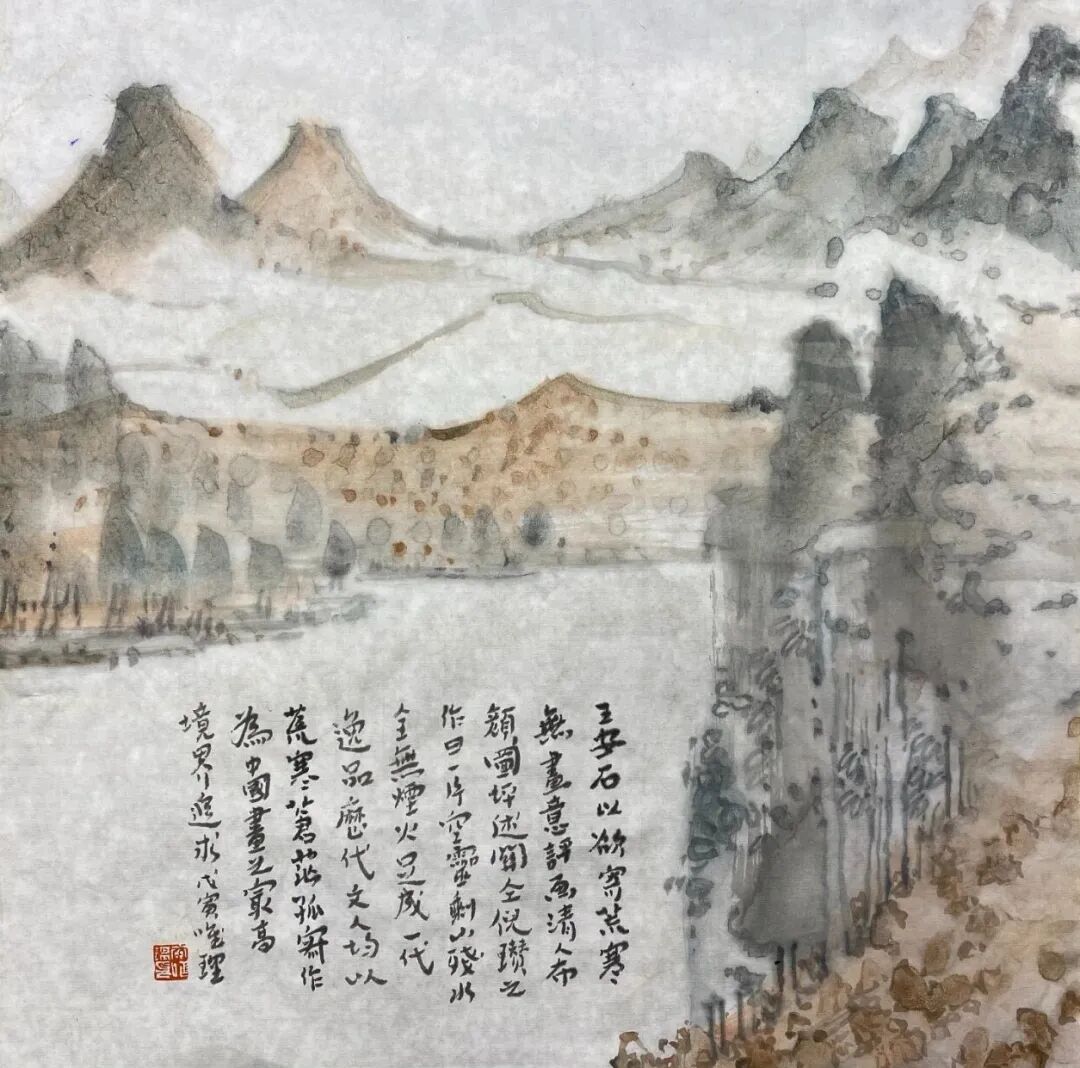 王安石以欲寄荒寒
無畫意評画清人布
顏圖評述關仝倪瓚之
作曰一片空靈剩山殘水
全無煙火足成一代
逸品歷代文人均以
荒寒蒼茫孤寂作
為中國畫之最高
境界追求戊寅唯理